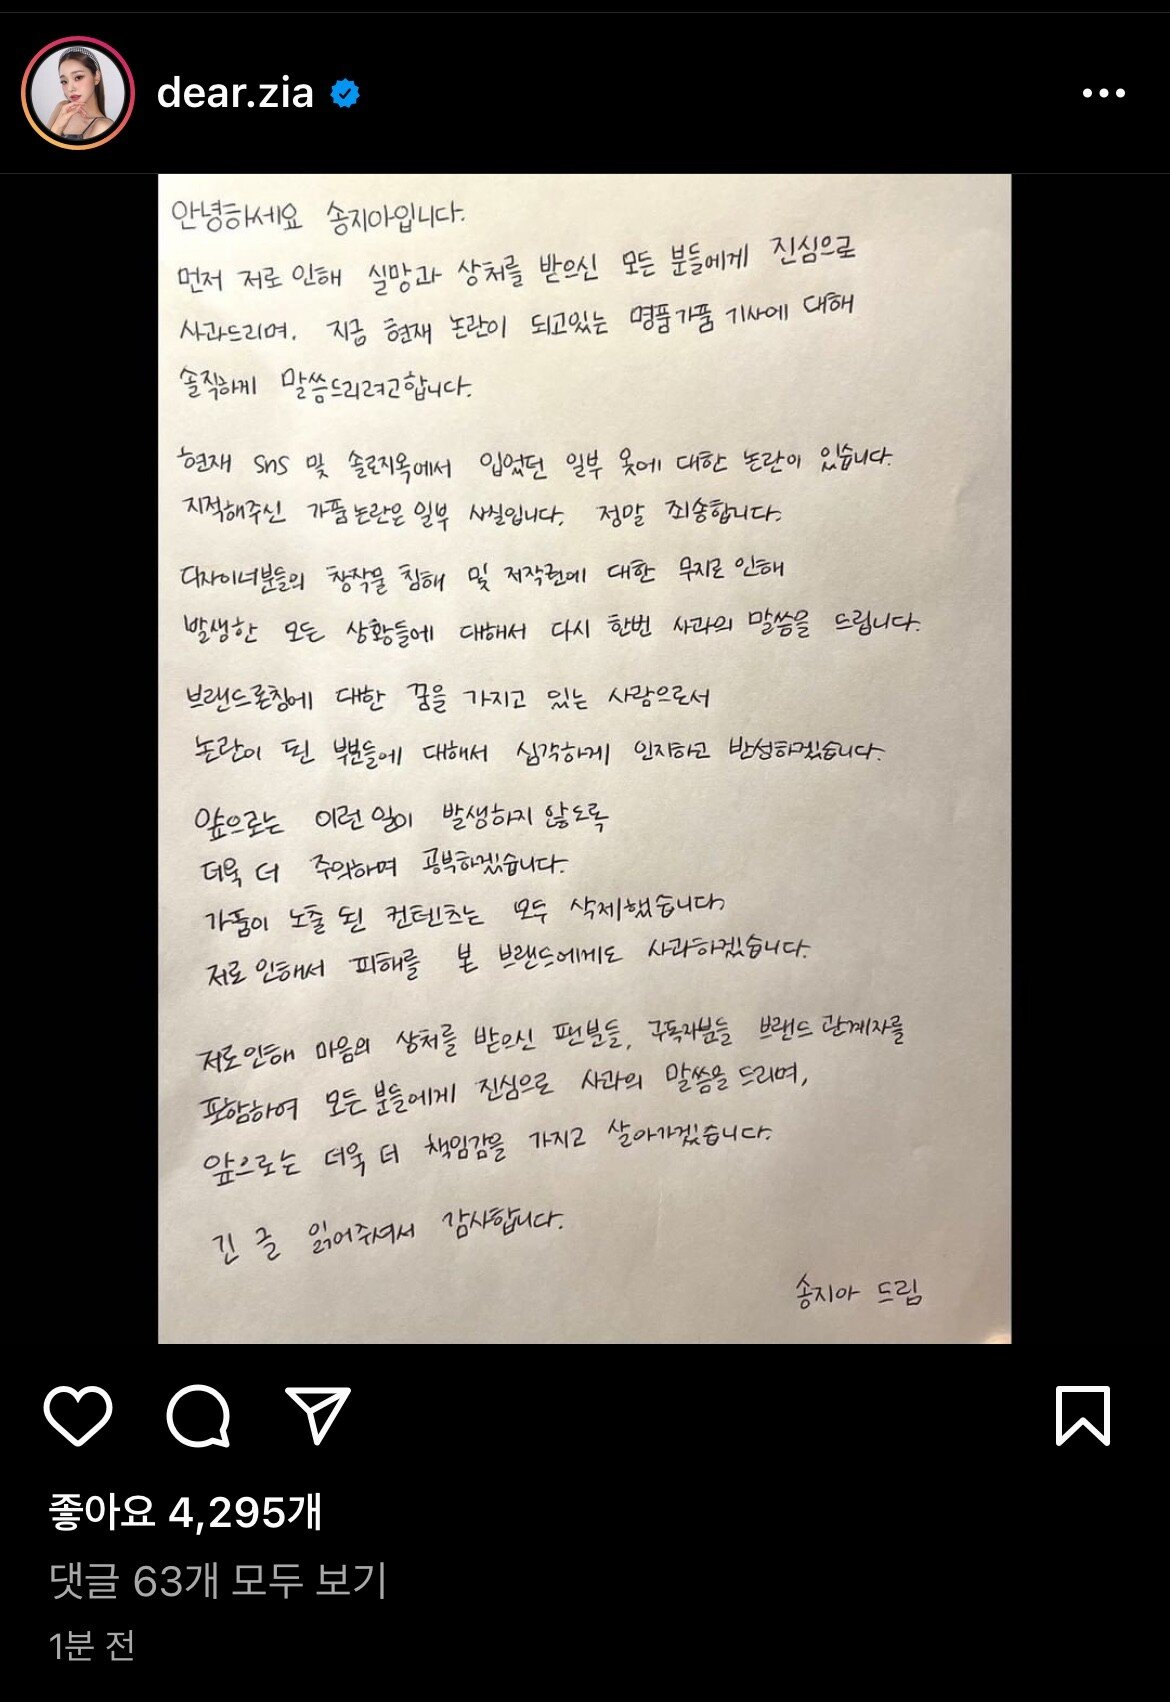 dear.zia
안녕하세요 송지아입니다.
먼저 저로 인해 실망과 상처를 받으신 모든 분들에게 진심으로
사과드리며, 지금 현재 논란이 되고있는 명품가품 기사에 대해
솔직하게 말씀드리려고합니다.
현재 sns 및 솔로지옥에서 입었던 일부 옷에 대한 논란이 있습니다.
지적해주신 가품논란은 일부 사실입니다. 정말 죄송합니다.
디자이너분들의 창작물 침해 및 저작권에 대한 무지로 인해
발생한 모든 상황들에 대해서 다시 한번 사과의 말씀을 드립니다.
브랜드론칭에 대한 꿈을 가지고 있는 사람으로서
논란이 된 부분들에 대해서 심각하게 인지하고 반성하겠습니다.
앞으로는 이런 일이 발생하지 않도록
더욱 더 주의하며 공부하겠습니다.
가품이 노출 된 컨텐츠는 모두 삭제했습니다.
저로 인해서 피해를 본 브랜드에게도 사과하겠습니다.
저로인해 마음의 상처를 받으신 팬분들, 구독자분들 브랜드 관계자를
포함하여 모든 분들에게 진심으로 사과의 말씀을 드리며,
앞으로는 더욱 더 책임감을 가지고 살아가겠습니다.
긴 글 읽어주셔서 감사합니다.
송지아 드림
좋아요 4,295개
댓글 63개 모두 보기
1분 전